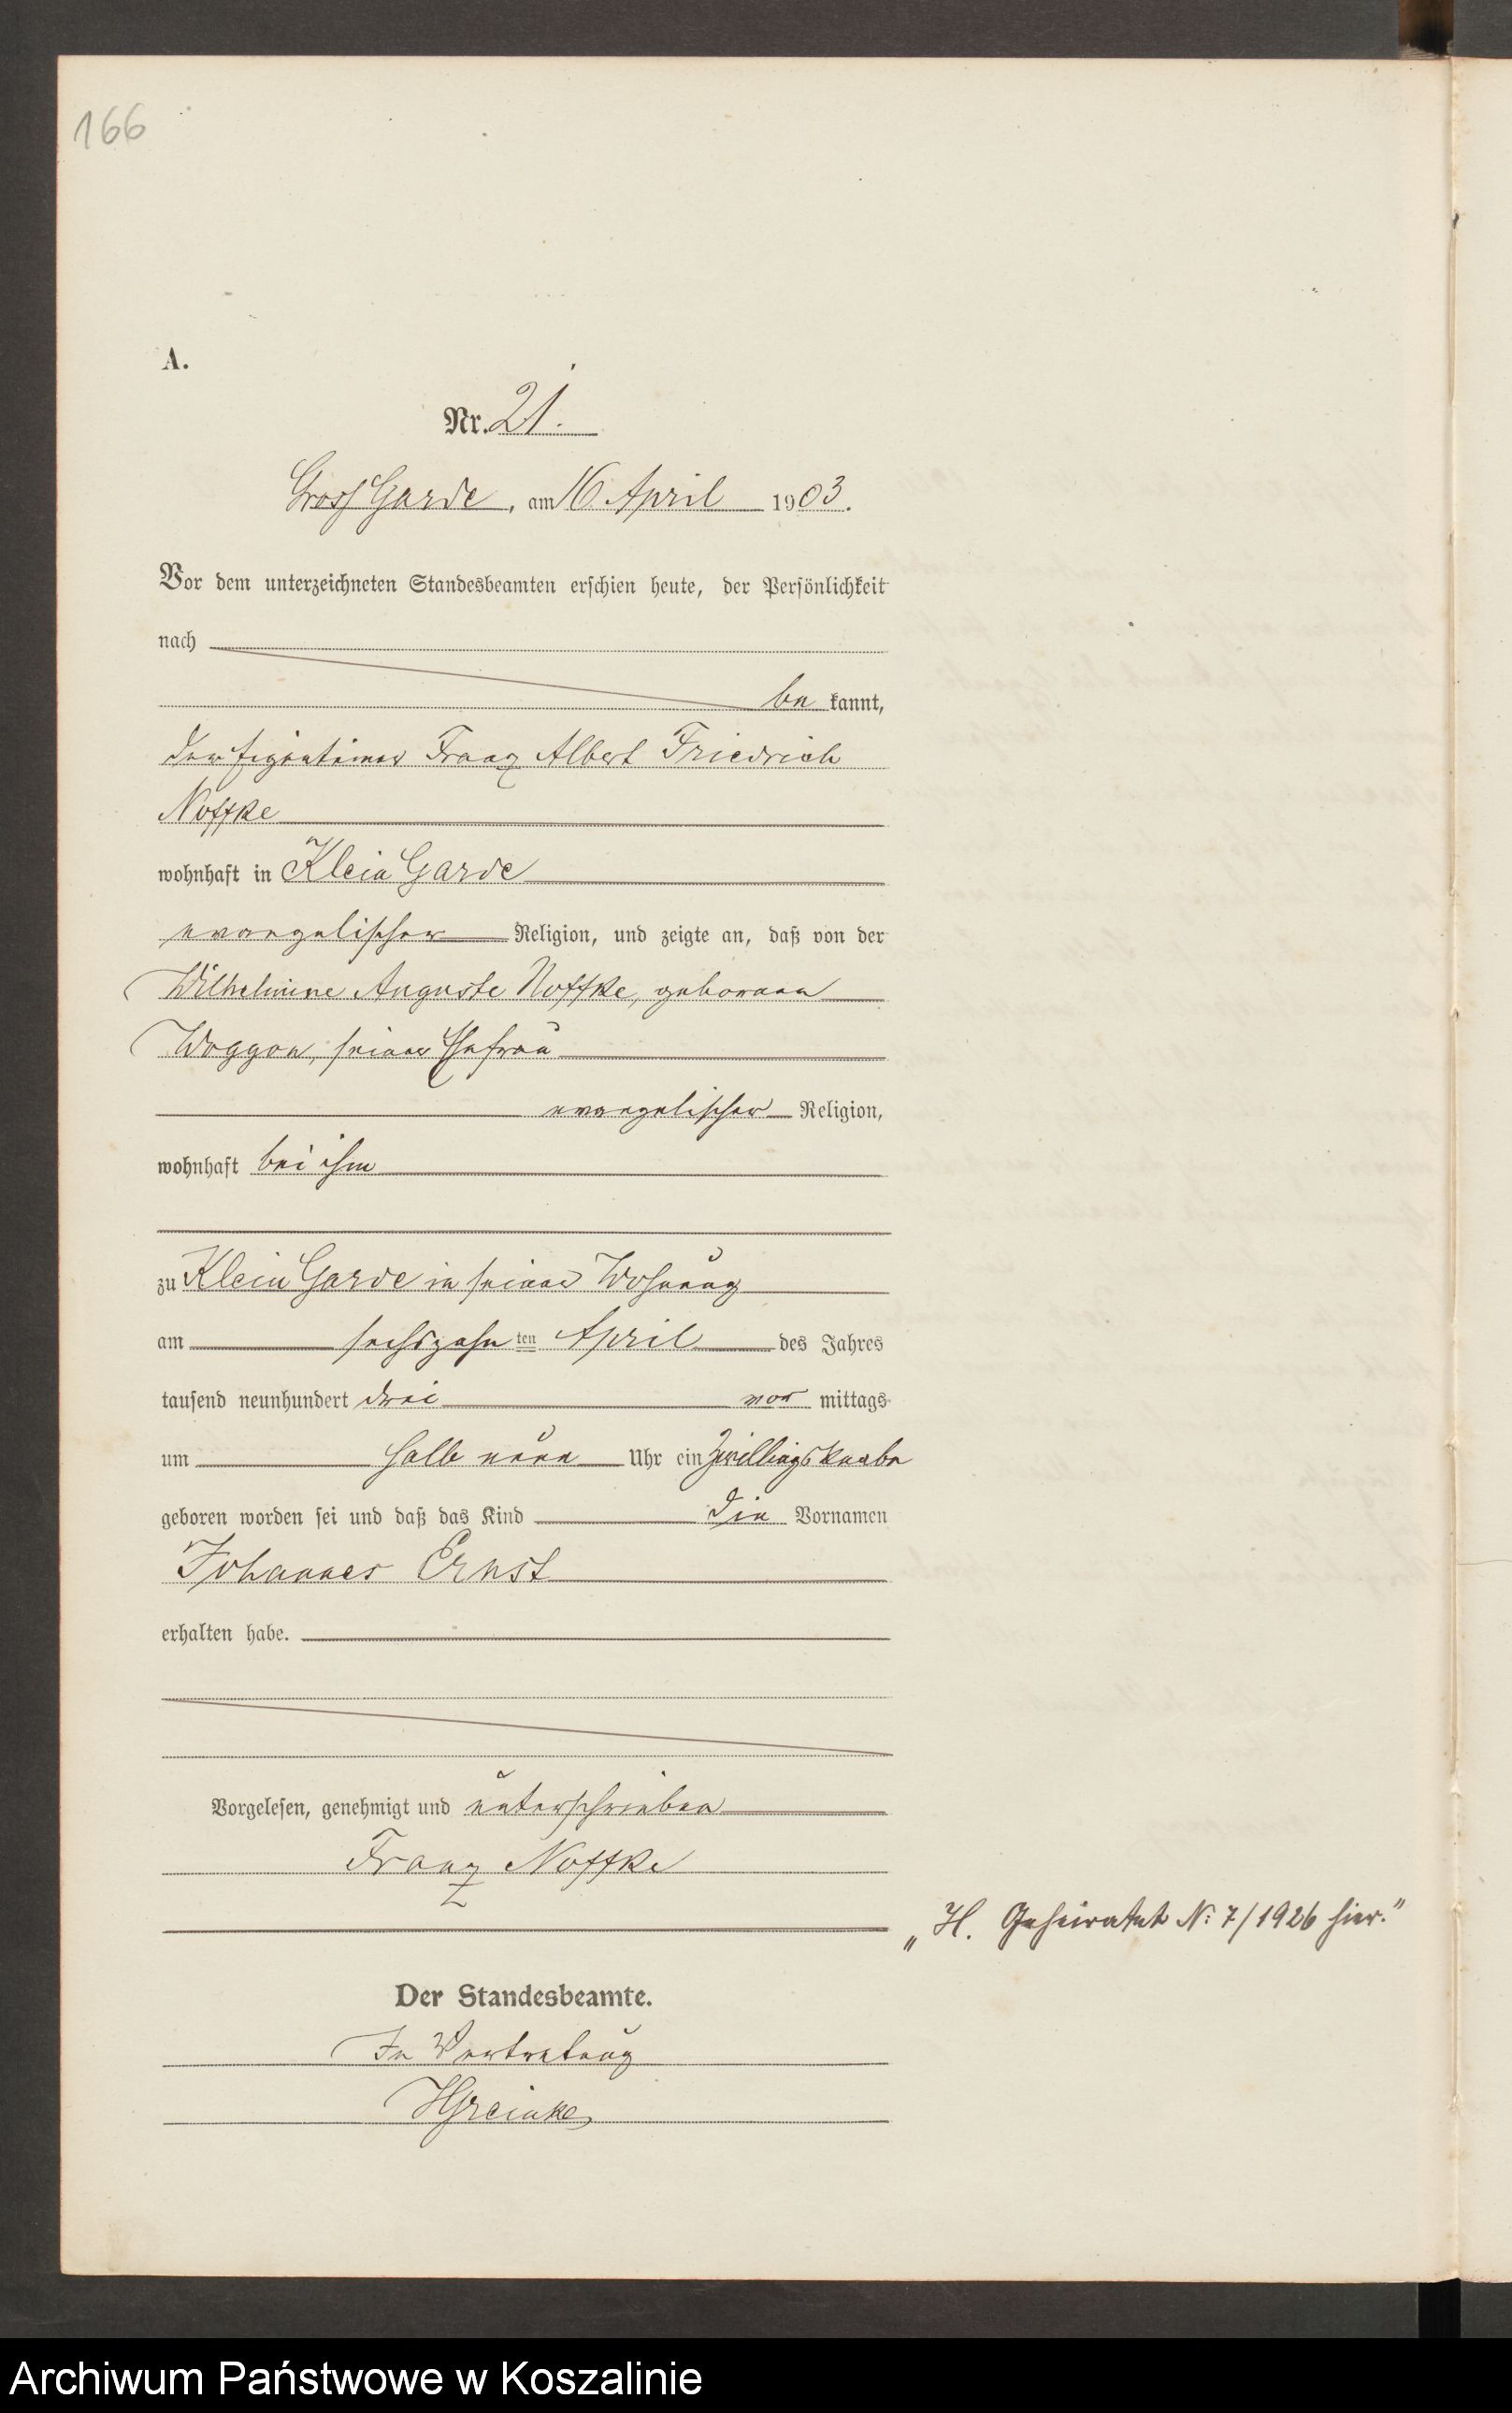 166
A.
Nr. 21.
Gross Garde, am 16 April 1903.
Vor dem unterzeichneten Standesbeamten erschien heute, der Persönlichkeit
nach
be kannt,
der Eigentümer Franz Albert Friedrich
Noffke
wohnhaft in Klein Garde
evangelischer Religion, und zeigte an, daß von der
Wilhelmine Auguste Noffke, geborenen
Woggon, seiner Ehefrau
evangelischer Religion,
wohnhaft bei ihm
zu Klein Garde in seiner Wohnung
am sechszehn ten April des Jahres
tausend neunhundert drei vor mittags
um halb neun Uhr ein Zwillingsknabe
geboren worden sei und daß das Kind die Vornamen
Johannes Ernst
erhalten habe.
Vorgelesen, genehmigt und unterschrieben
Franz Noffke
„H. Geheiratet N: 7/1926 hier.“
Der Standesbeamte.
In Vertretung
HGreinke
Archiwum Państwowe w Koszalinie